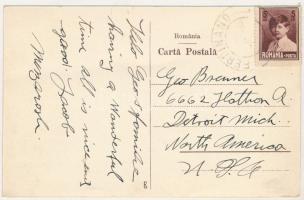 România
Cartă Postală
ROMANIA
Geo Brenner
6662 Hathon A.
Detroit Mich.
North America
U.S.A
Hello Geo & familie
having a Wonderful
time all is nice and
good Jacob